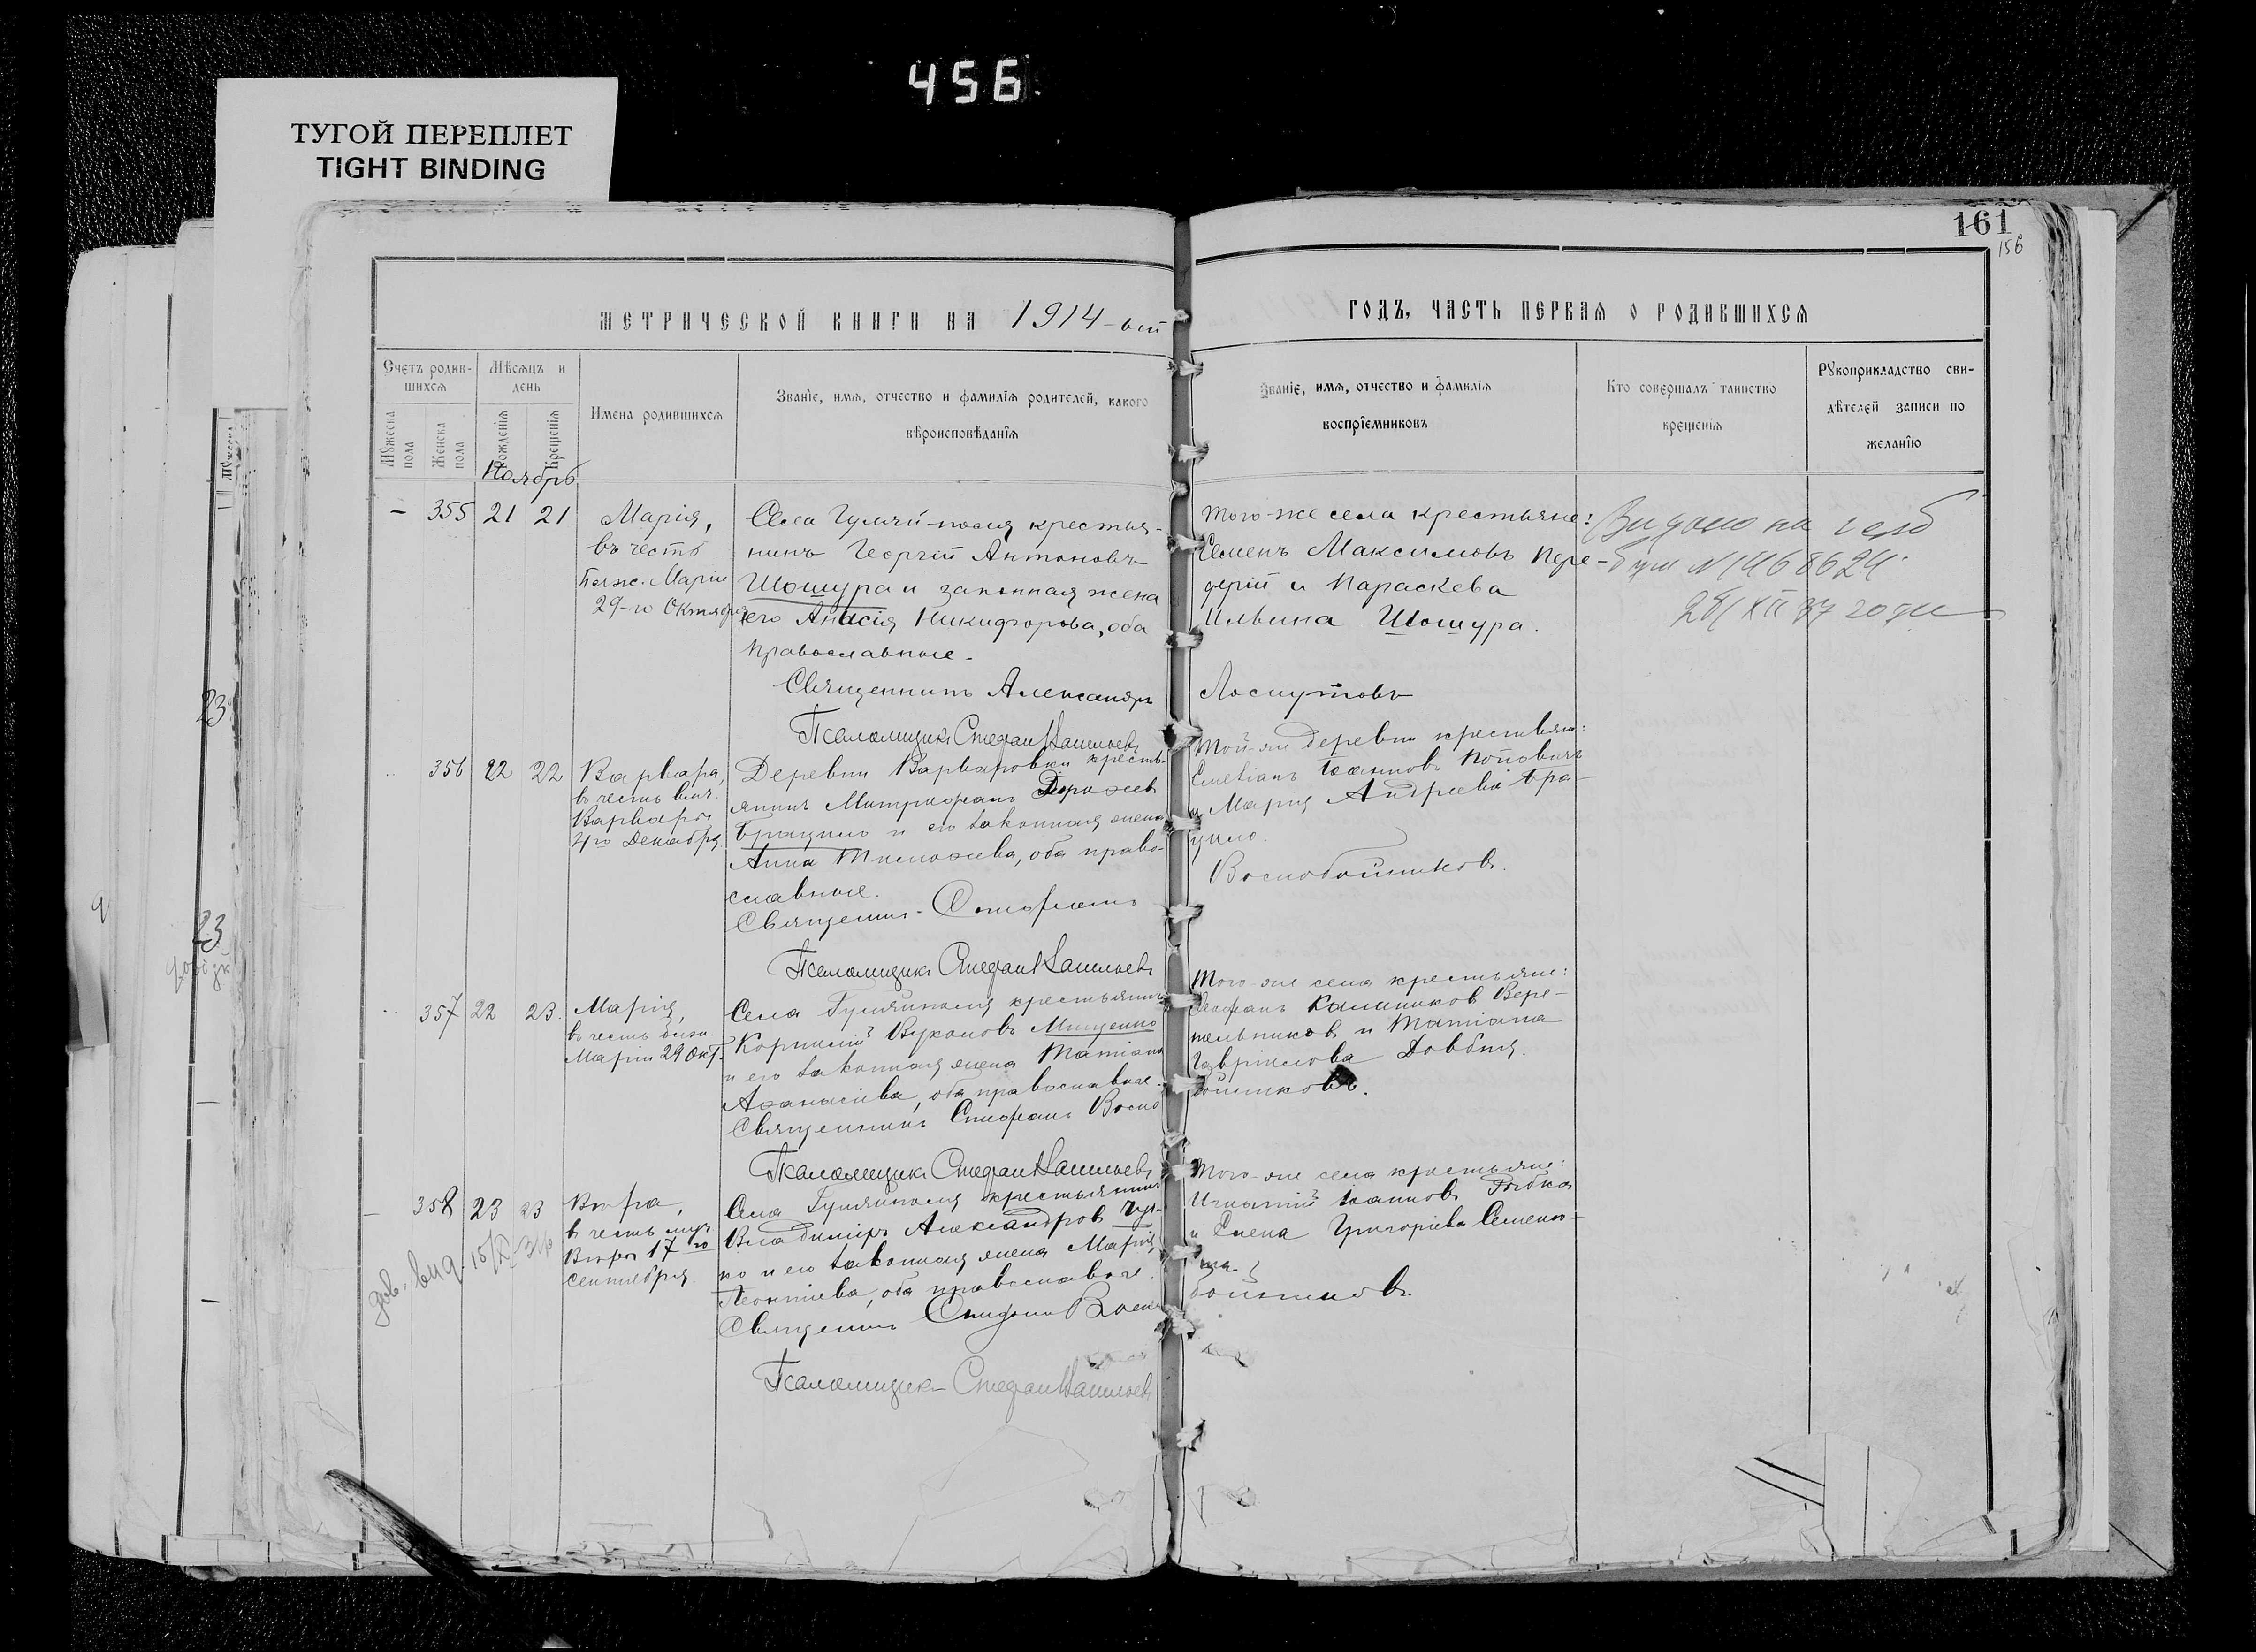 456
ТУГОЙ ПЕРЕПЛЕТ
TIGHT BINDING
161
156
МЕТРИЧЕСКОЙ КНИГИ НА 1914-ый
ГОДЪ, ЧАСТЬ ПЕРВАЯ О РОДИВШИХСЯ
Счетъ родив-
шихся
Мѣсяцъ и
день
Мужеска
пола
Женска
пола
Рожденія
Крещенія
Имена родившихся
Званіе, имя, отчество и фамилія родителей, какого
вѣроисповѣданія
Званіе, имя, отчество и фамилія
воспріемниковъ
Кто совершалъ таинство
крещенія
Рукоприкладство сви-
дѣтелей записи по
желанію
Ноябрь
- 355 21 21
Марія,
въ честь
Марiи
29-го Октября
Села Гуляй-поля крестья-
нинъ Георгій Антоновъ
Шошура и законная жена
его Анасія Никифорова, оба
православные.
Священникъ Александръ
Псаломщикъ Стефанъ Васильевъ
Того-же села крестьяне:
Семенъ Максимовъ Пере-
дерій и Параскева
Ильина Шошура.
Лоскутовъ
Видано на
N 1468624
XII 37 года
356 22 22
Варвара,
въ честь
Варвары
4го Декабря.
Деревни Варваровки кресть-
янинъ Митрофанъ
и его законная жена
Анна Тимофеева, оба право-
славные.
Священникъ Стефанъ
Псаломщикъ Стефанъ Васильевъ
Той-же деревни крестьяне:
Емеліанъ Іоанновъ Поповичъ
и Марія Андреева Бра-
Воскобойниковъ.
357 22 23.
Марія,
въ честь
Маріи 29 Окт.
Села Гуляйполя крестьянинъ
Корнилій Мищенко
и его законная жена Татіана
Афанасіева, оба православные.
Священникъ Стефанъ Воско
Псаломщикъ Стефанъ Васильевъ
Того-же села крестьяне:
Вере-
мельниковъ и Татіана
Гавріилова Довбня.
бойниковъ.
- 358 23 23
Вѣра,
въ честь муч.
Вѣры 17го
Сентября.
Села Гуляйполя крестьянинъ
Владиміръ Александровъ
ко и его законная жена Марія
Леонтіева, оба православные.
Священникъ Стефанъ Воско
Псаломщикъ Стефанъ Васильевъ
Того-же села крестьяне:
Игнатій Іоанновъ Рыбка
и Елена Григоріева Семеню-
та
бойниковъ.
23
23